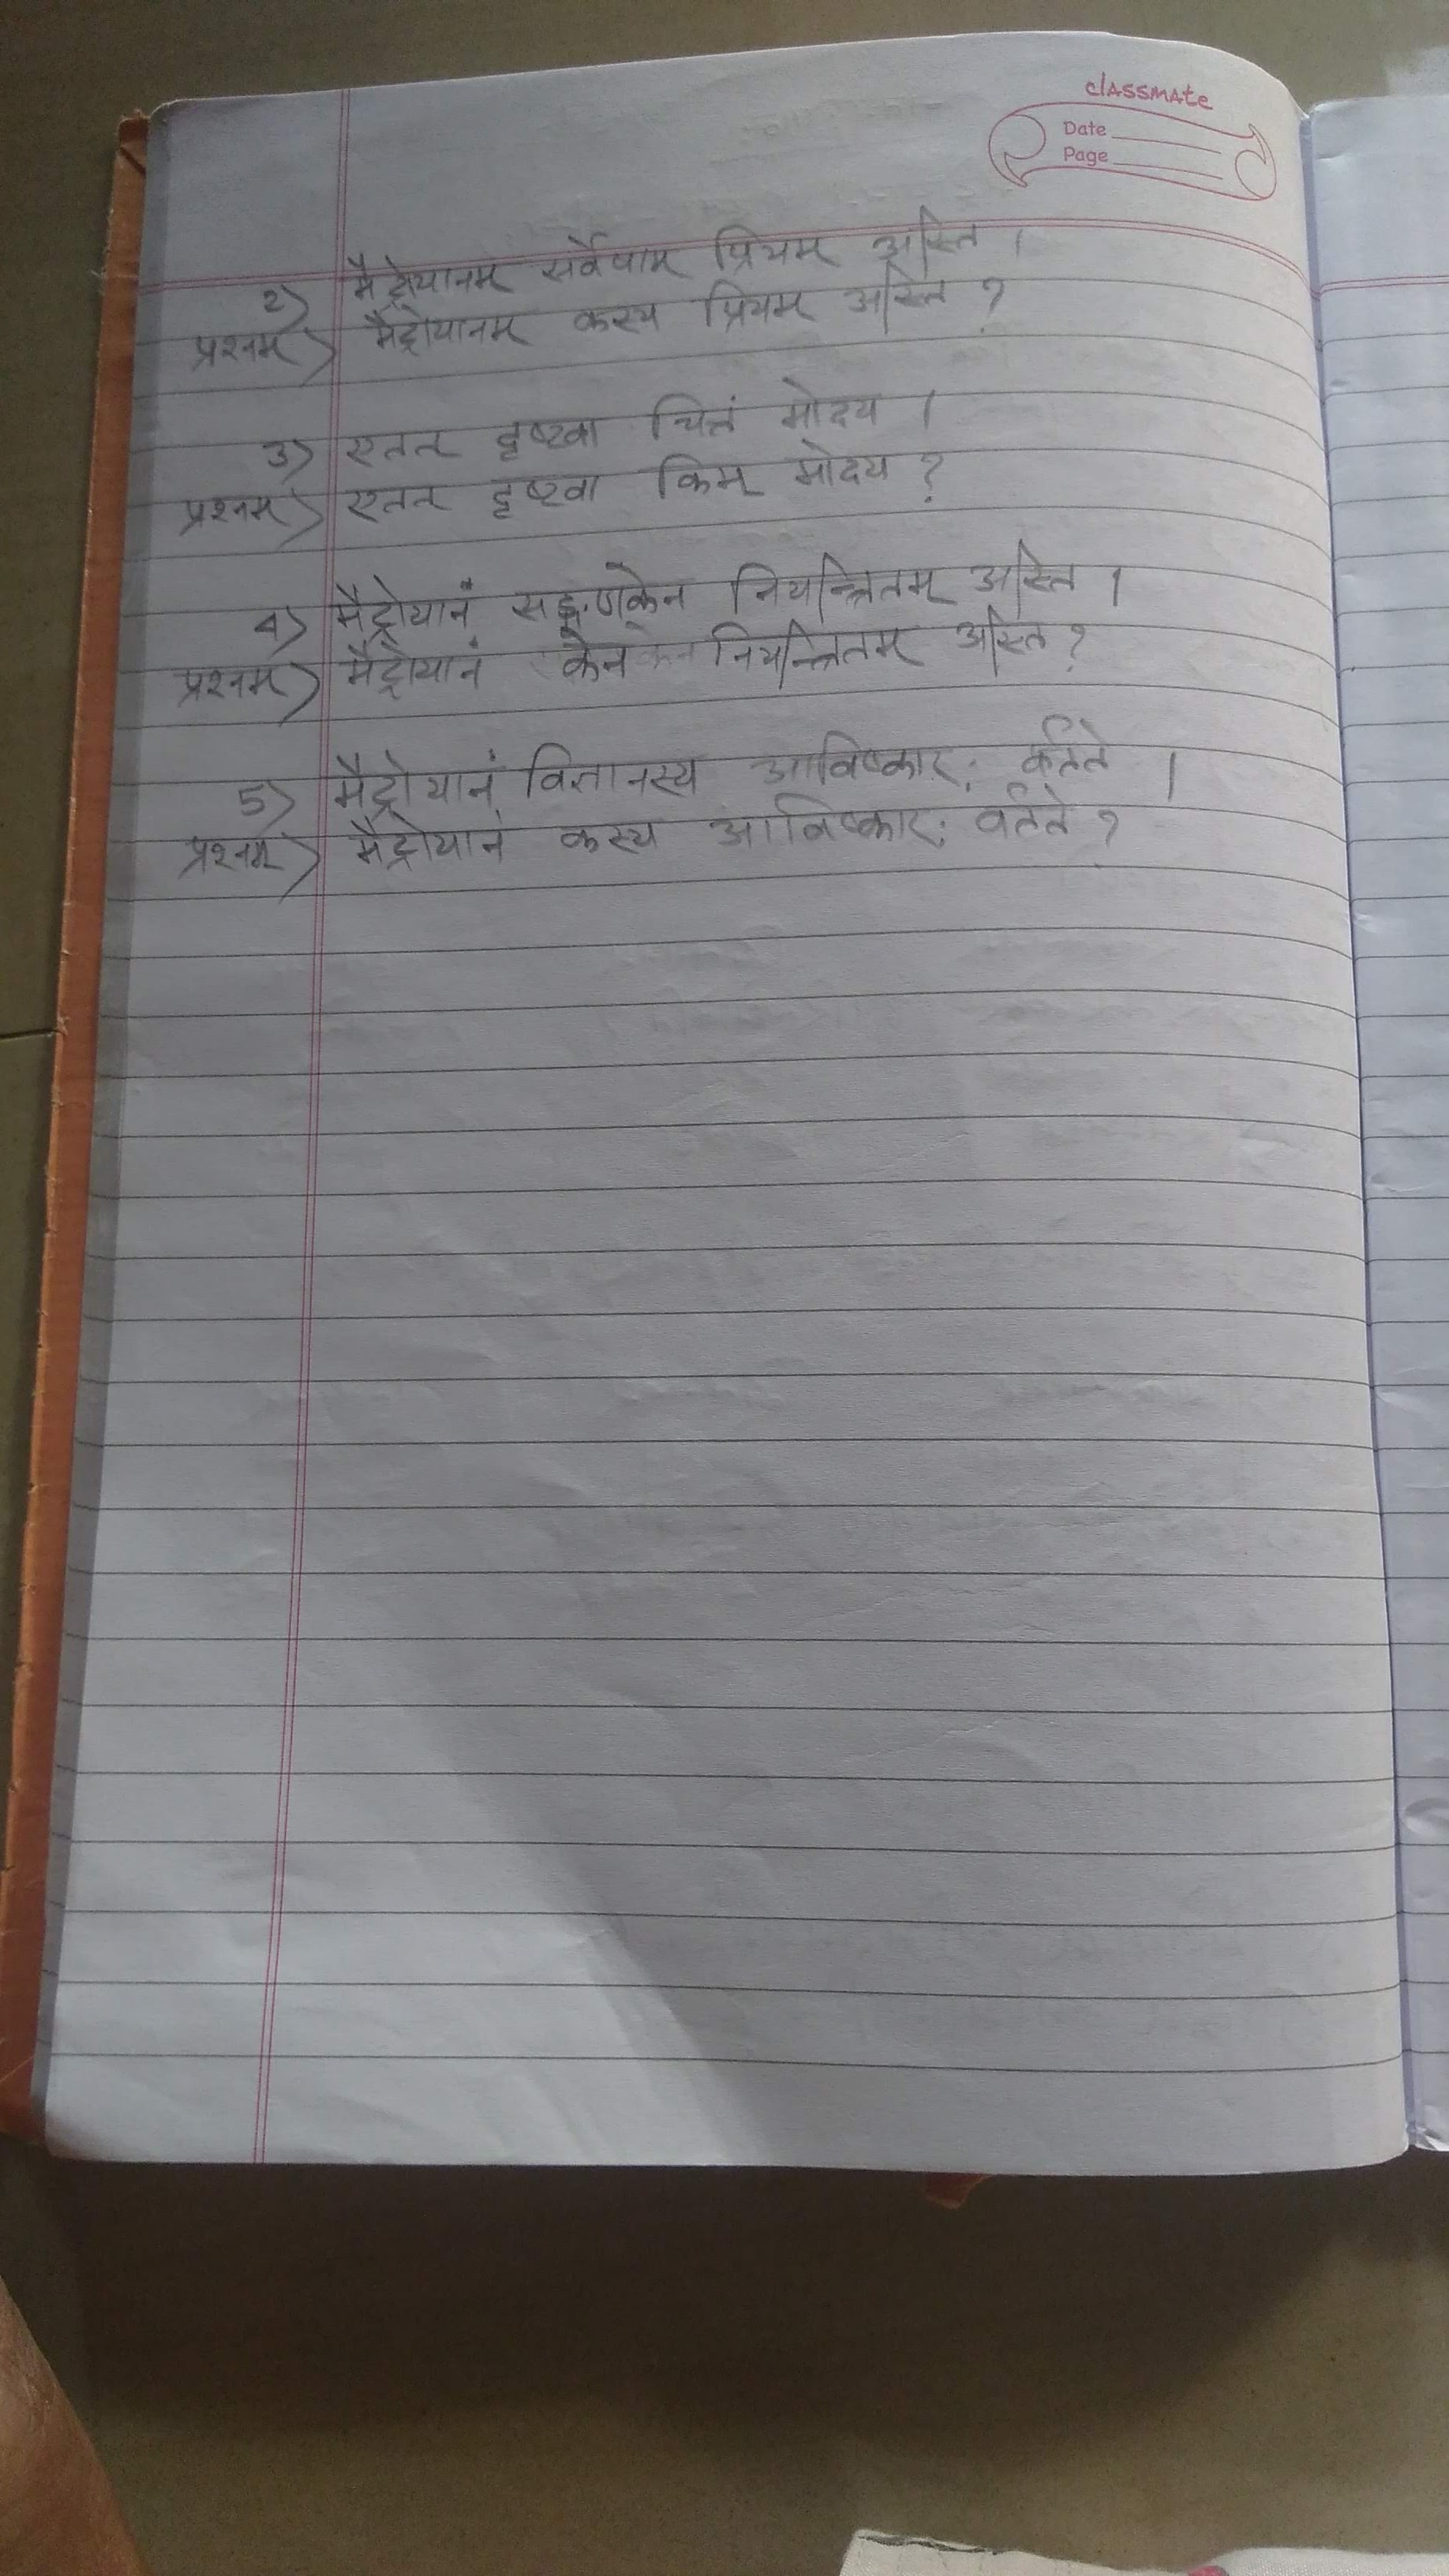 classmate
Date
Page
2) मैट्रोयानम् सर्वेषाम् प्रियम् अस्ति ।
प्रश्नम्) मैट्रोयानम् कस्य प्रियम् अस्ति ?
3) एतत् दृष्टवा चित्तं मोदय ।
प्रश्नम्) एतत् दृष्टवा किम् मोदय ?
4) मैट्रोयानं सङ्गणकेन नियन्त्रितम् अस्ति ।
प्रश्नम्) मैट्रोयानं केन नियन्त्रितम् अस्ति ?
5) मैट्रोयानं विज्ञानस्य आविष्कार: वर्तते ।
प्रश्नम्) मैट्रोयानं कस्य आविष्कार: वर्तते ?